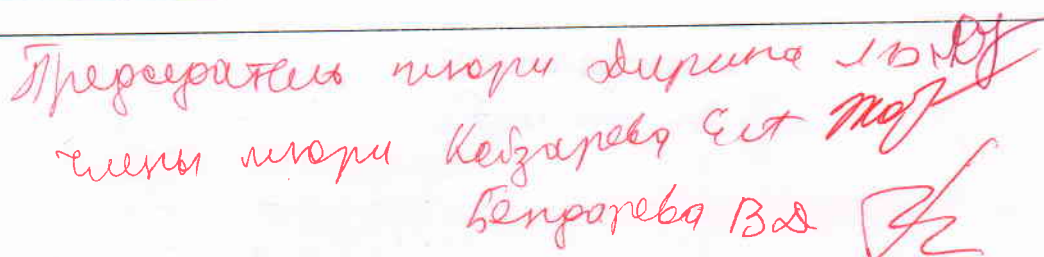 Председатель жюри Дирина
члены жюри Кобзарева Е.А
Бондарева В.Д